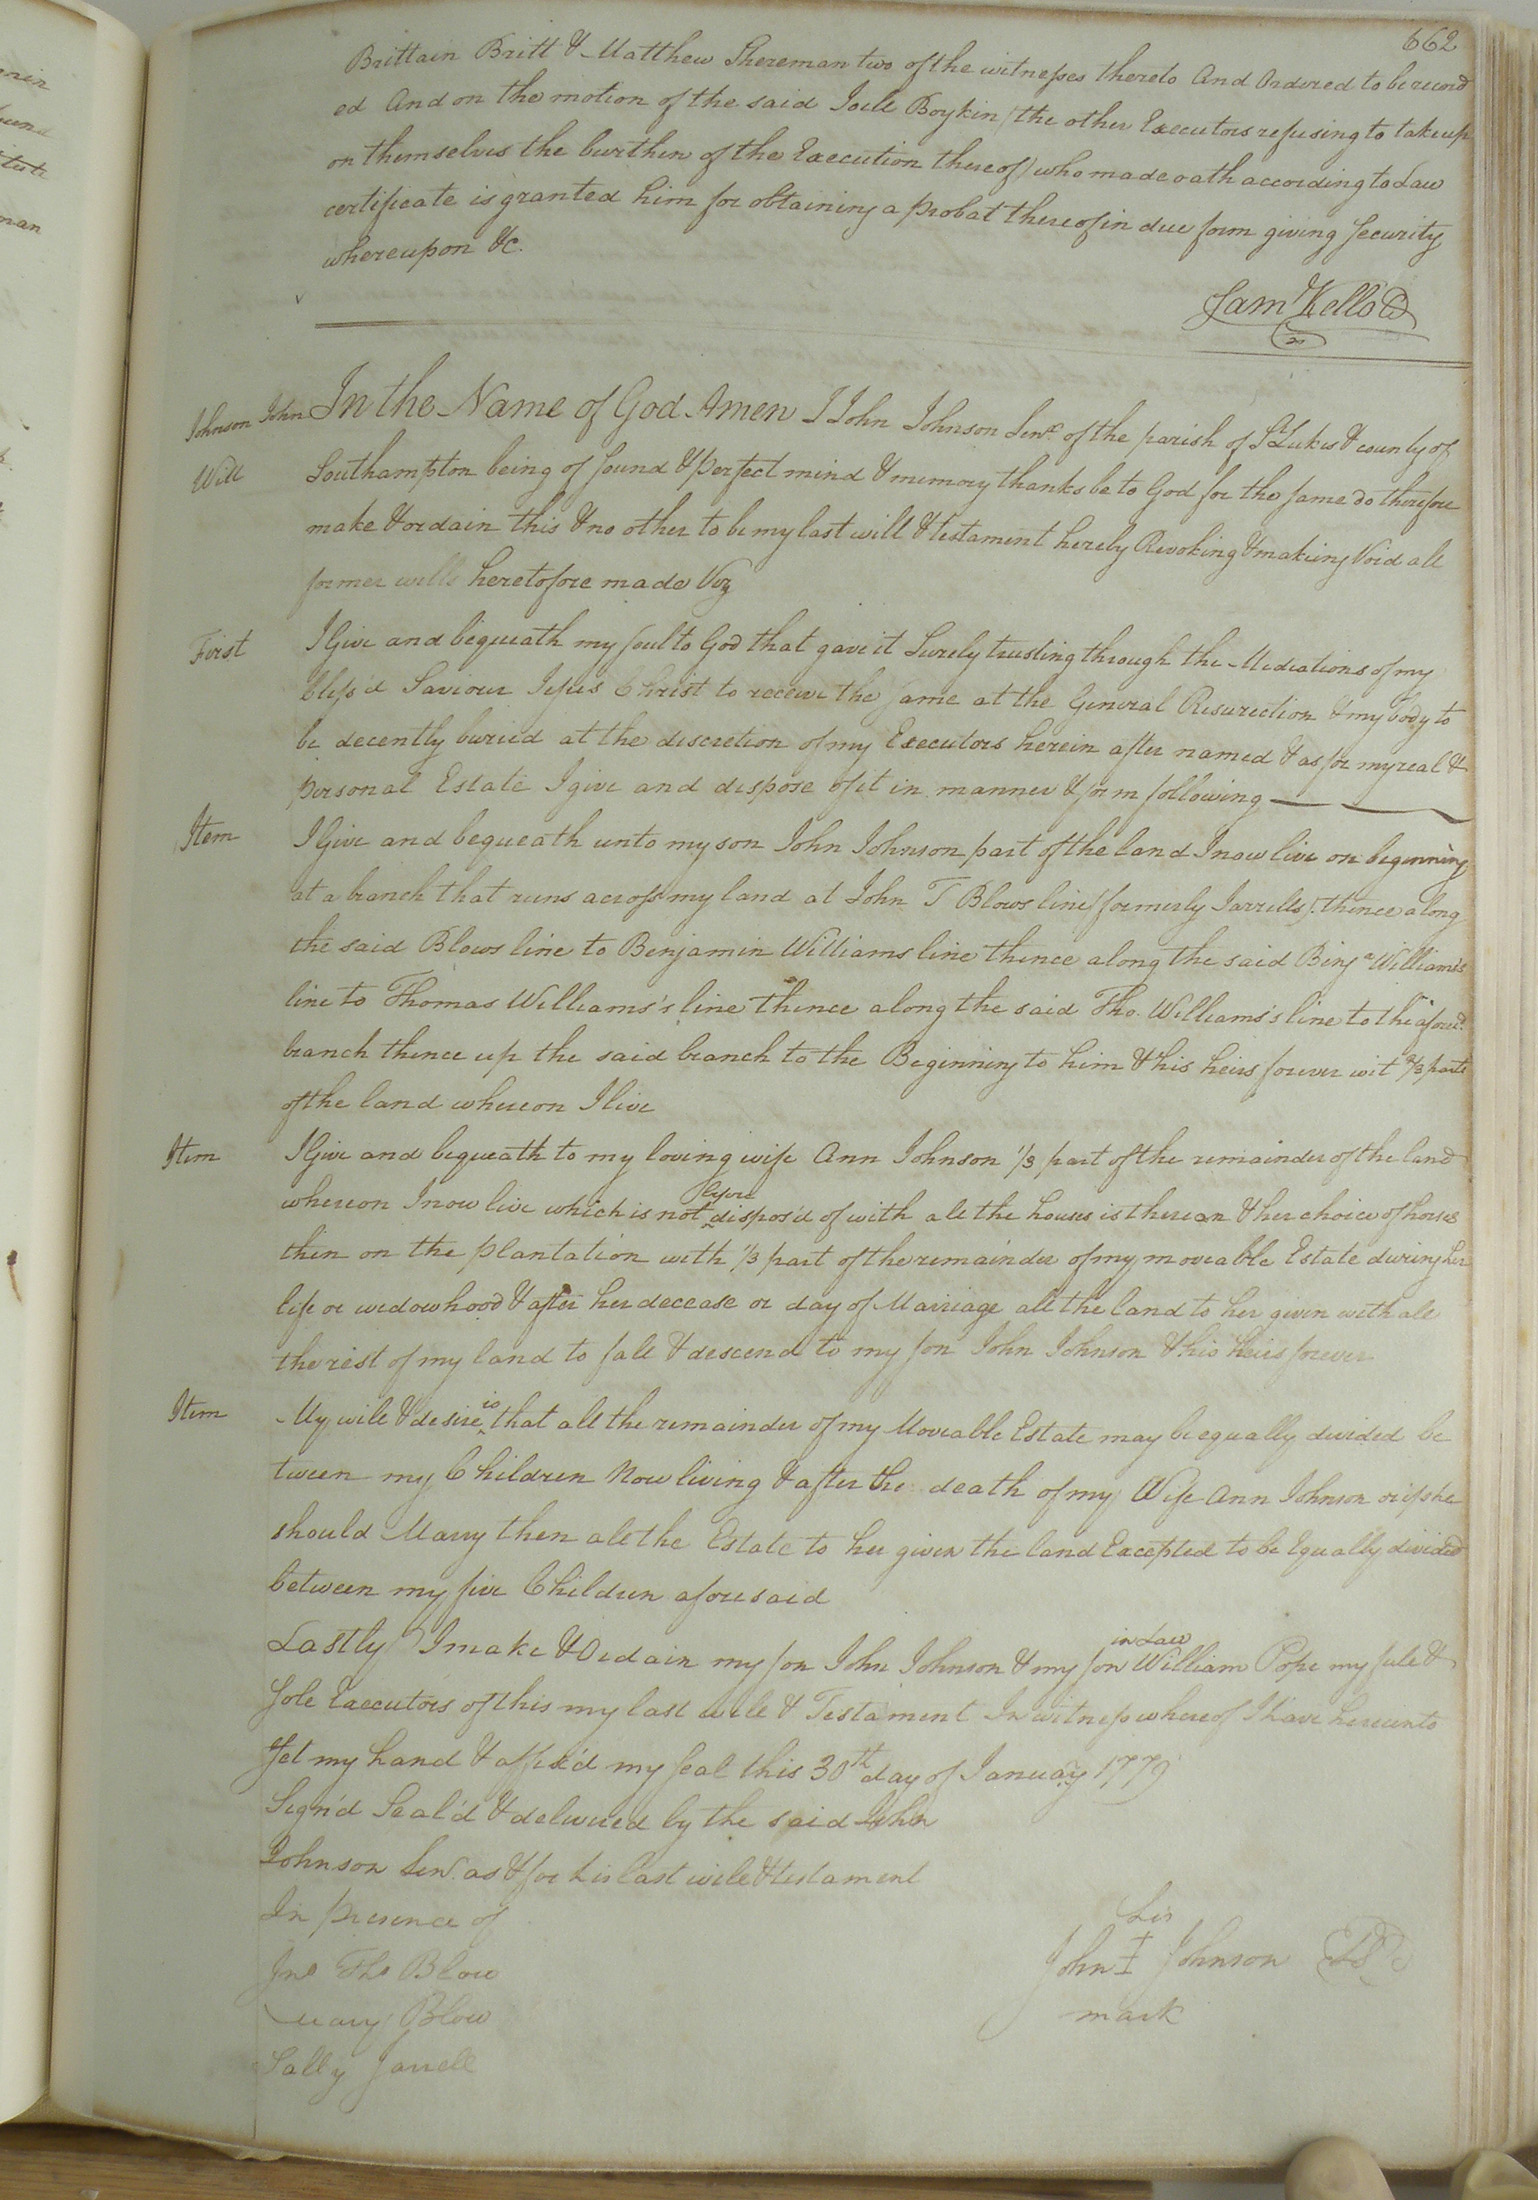 662
Brittain Britt & Matthew Shereman two of the witnesses thereto And Ordered to be record
ed And on the motion of the said Joell Boykin (the other Executors refusing to take up
on themselves the burthen of the Execution thereof) who made oath according to Law
certificate is granted him for obtaining a probat thereof in due form giving security
whereupon &c.
Saml Kello
Johnson John
Will
In the Name of God Amen I John Johnson Senr of the parish of St Lukes & county of
Southampton being of sound & perfect mind & memory thanks be to God for the same do therefore
make & ordain this & no other to be my last will & testament hereby Revoking & making Void all
former wills heretofore made Viz
First I Give and bequeath my soul to God that gave it Surely trusting through the Mediations of my
bless'd Saviour Jesus Christ to receive the same at the General Resurection & my body to
be decently buried at the discretion of my Executors herein after named & as for my real &
personal Estate I give and dispose of it in manner & form following
Item I Give and bequeath unto my son John Johnson part of the land I now live on beginning
at a branch that runs across my land at John T Blows line (formerly Jarrells) thence along
the said Blows line to Benjamin Williams line thence along the said Benja Williams's
line to Thomas Williams's line thence along the said Tho. Williams's line to the aforesd
branch thence up the said branch to the Beginning to him & his heirs forever wit 2/3 parts
of the land whereon I live
Item I Give and bequeath to my loving wife Ann Johnson 1/3 part of the remainder of the land
whereon I now live which is not before dispos'd of with all the houses is thereon & her choice of horses
then on the plantation with 1/3 part of the remainder of my moveable Estate during her
life or widowhood & after her decease or day of Marriage all the land to her given with all
the rest of my land to fall & descend to my son John Johnson & his heirs forever
Item My will & desire is that all the remainder of my Moveable Estate may be equally divided be
tween my Children Now living & after the death of my Wife Ann Johnson or if she
should Marry then all the Estate to her given the land Excepted to be Equally divided
between my five Children aforesaid
Lastly I make & Ordain my son John Johnson & my son in Law William Pope my fule &
Sole Executors of this my last will & Testament In witness whereof I have hereunto
set my hand & affix'd my seal this 30th day of January 1779
Sign'd Seal'd & delivered by the said John
Johnson Senr. as & for his last will & testament
In presence of
Jno Tho Blow
Mary Blow
Sally Jarrell
his
John I Johnson LS
mark